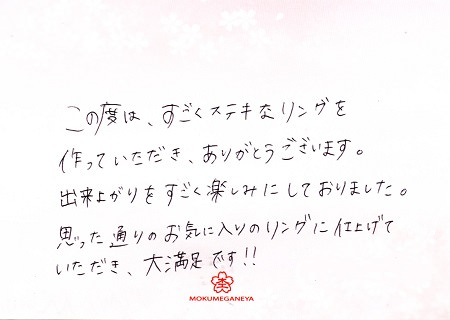 この度は、すごくステキなリングを
作っていただき、ありがとうございます。
出来上がりをすごく楽しみにしておりました。
思った通りのお気に入りのリングに仕上げて
いただき、大満足です!!
MOKUMEGANEYA